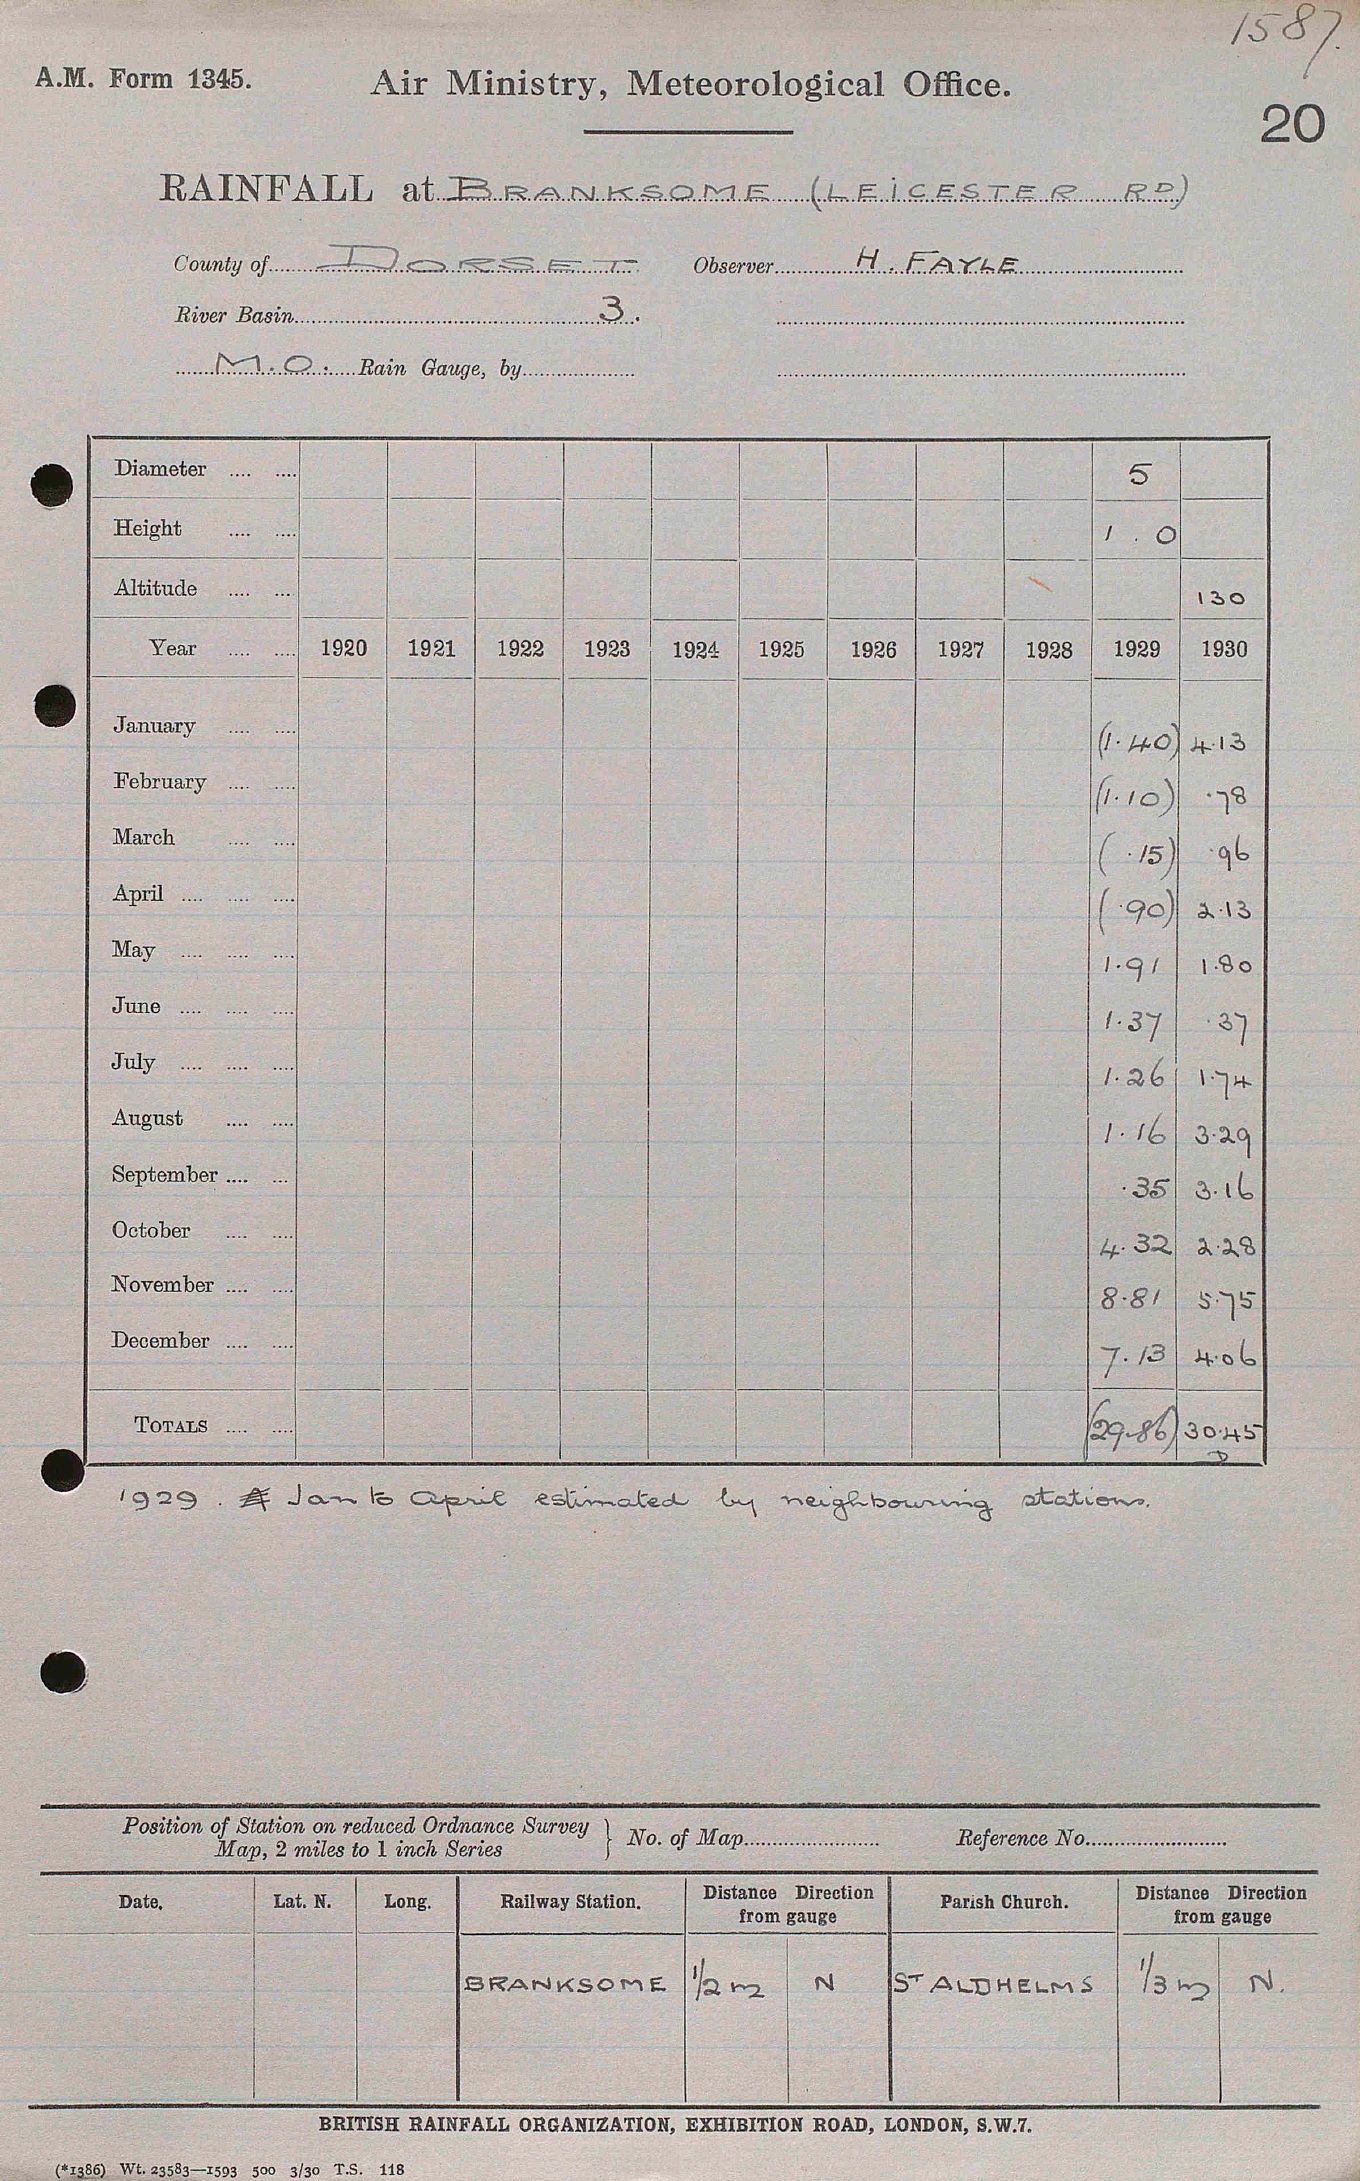 1587.
A.M. Form 1345. Air Ministry, Meteorological Office.
20
RAINFALL at BRANKSOME (LEICESTER RD)
County of DORSET Observer H. FAYLE
River Basin 3.
M.O. Rain Gauge, by
Diameter .... .... 5
Height .... .... 1 . 0
Altitude .... .... 130
Year .... .... 1920 1921 1922 1923 1924 1925 1926 1927 1928 1929 1930
January .... .... (1.40) 4.13
February .... .... (1.10) .78
March .... .... ( .15) .96
April .... .... .... ( .90) 2.13
May .... .... .... 1.91 1.80
June .... .... .... 1.37 .37
July .... .... .... 1.26 1.74
August .... .... 1.16 3.29
September .... .... .35 3.16
October .... .... 4.32 2.28
November .... .... 8.81 5.75
December .... .... 7.13 4.06
TOTALS .... .... (29.86) 30.45
D
1929. Jan to April estimated by neighbouring stations.
Position of Station on reduced Ordnance Survey
Map, 2 miles to 1 inch Series } No. of Map Reference No.
Date. Lat. N. Long. Railway Station. Distance Direction from gauge Parish Church. Distance Direction from gauge
BRANKSOME 1/2 m N ST ALDHELMS 1/3 m N.
BRITISH RAINFALL ORGANIZATION, EXHIBITION ROAD, LONDON, S.W.7.
(*1386) Wt. 23583—1593 500 3/30 T.S. 118